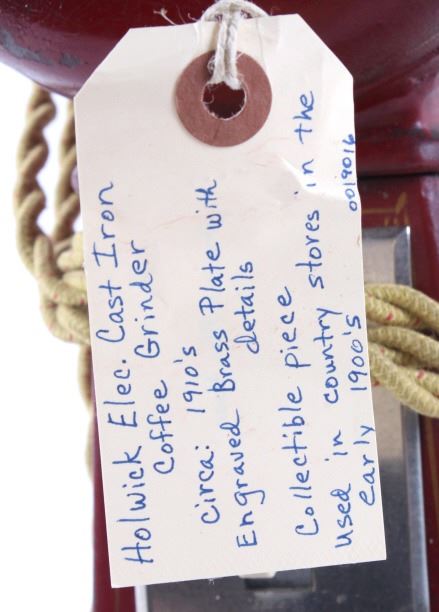 Holwick Elec. Cast Iron
Coffee Grinder
Circa: 1910's
Engraved Brass Plate with
details
Collectible piece
used in country stores in the
early 1900's
0019016